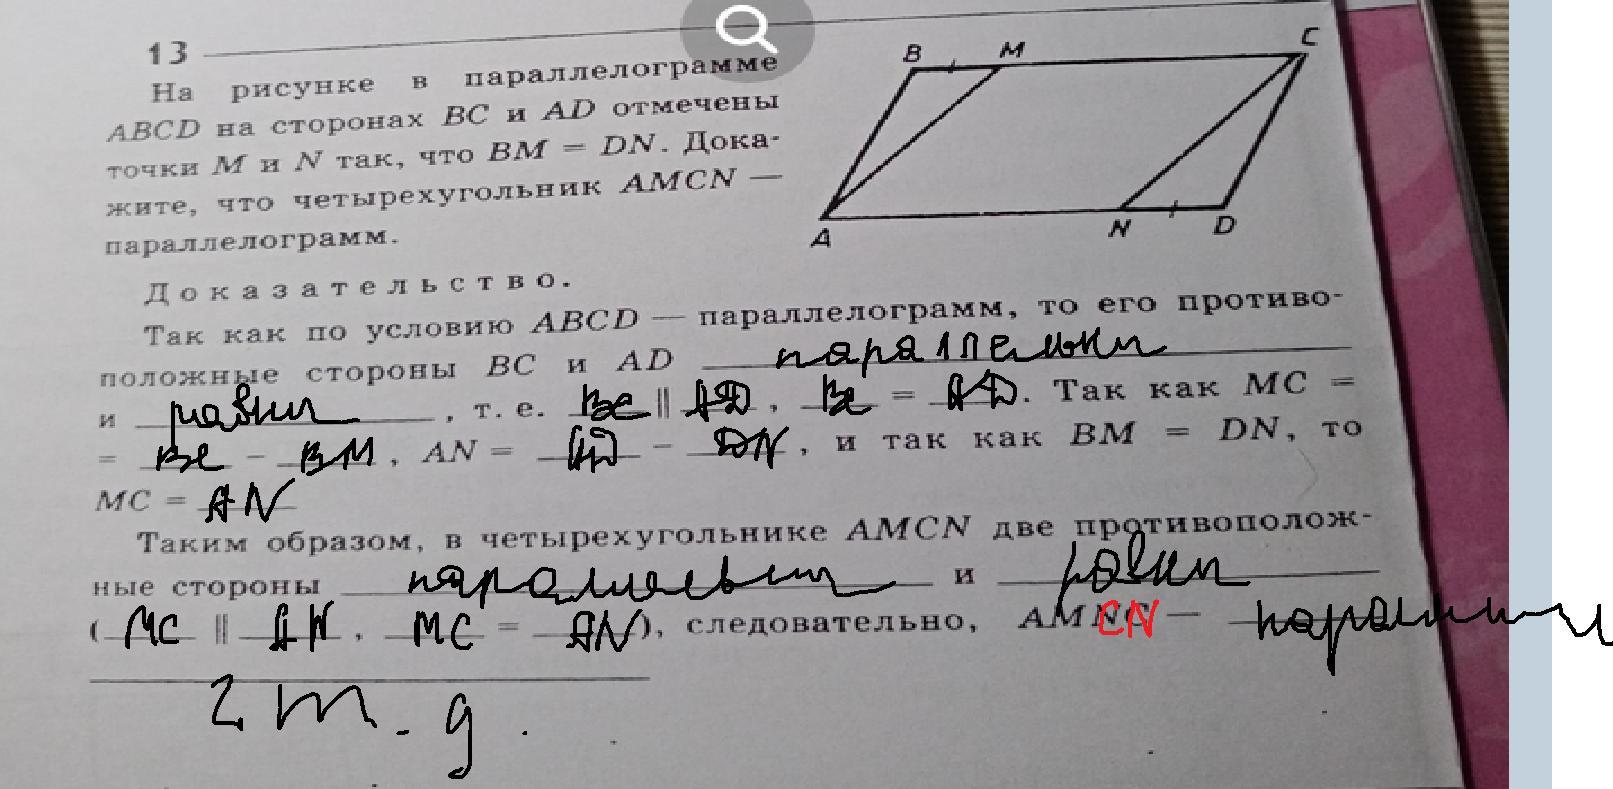 13
На рисунке в параллелограмме
ABCD на сторонах BC и AD отмечены
точки M и N так, что BM = DN. Дока-
жите, что четырехугольник AMCN —
параллелограмм.
B M C
A N D
Доказательство.
Так как по условию ABCD — параллелограмм, то его противо-
положные стороны BC и AD параллельны
и равны, т. е. BC || AD, BC = AD. Так как MC =
= BC – BM, AN = AD – DN, и так как BM = DN, то
MC = AN
Таким образом, в четырехугольнике AMCN две противополож-
ные стороны параллельны и равны
(MC || AN, MC = AN), следовательно, AMCN —
т. д.